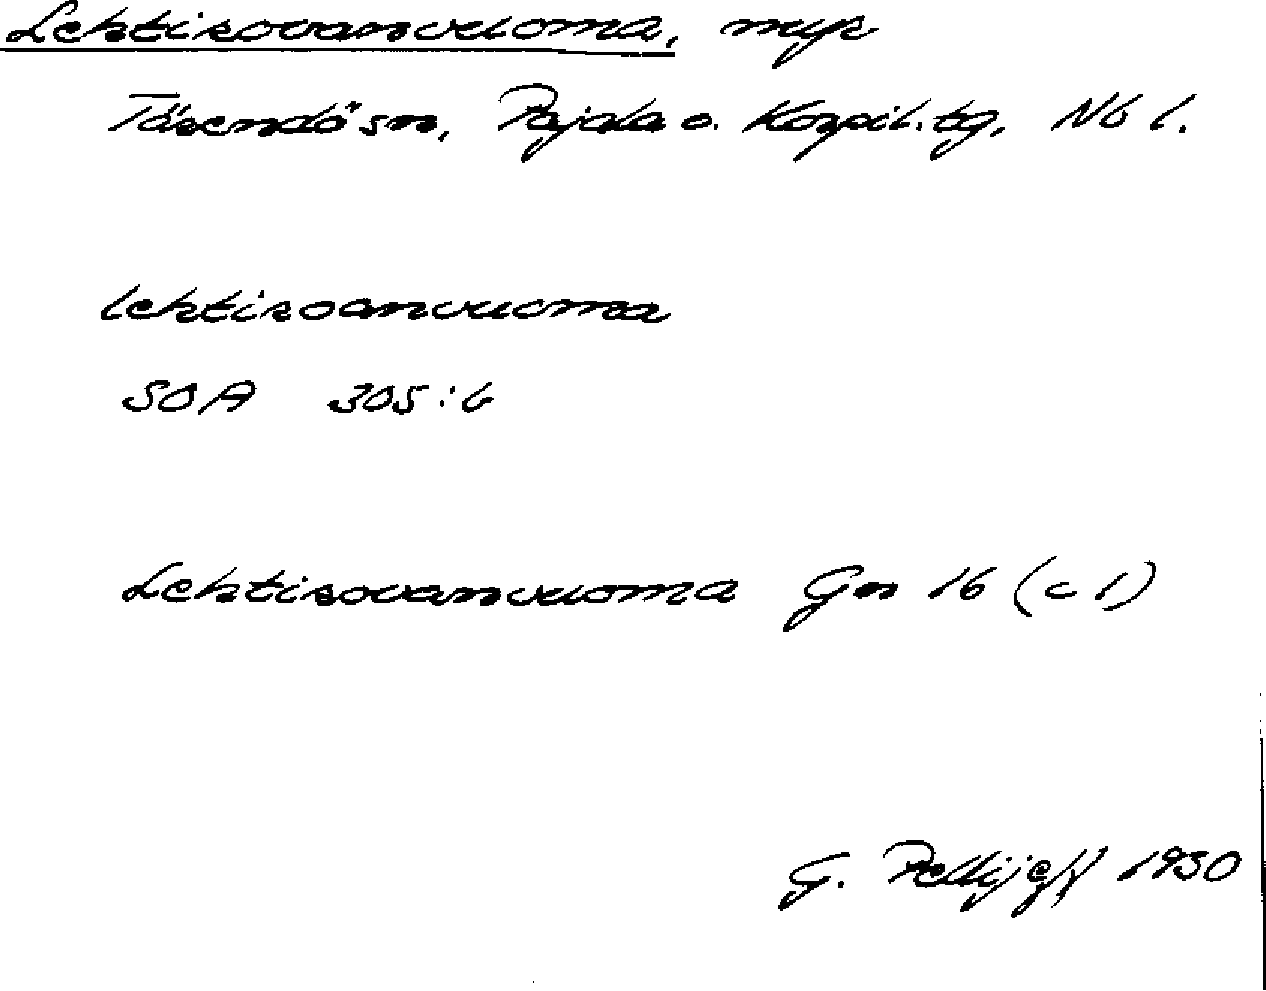 Lehtirovanvuoma, myr
Tärendö sn, Pajala o. Korpil. tg, Nb l.
lehtiroanvuoma
SOA 305:6
Lehtirovanvuoma Gn 16 (c 1)
G. Pellijeff 1950